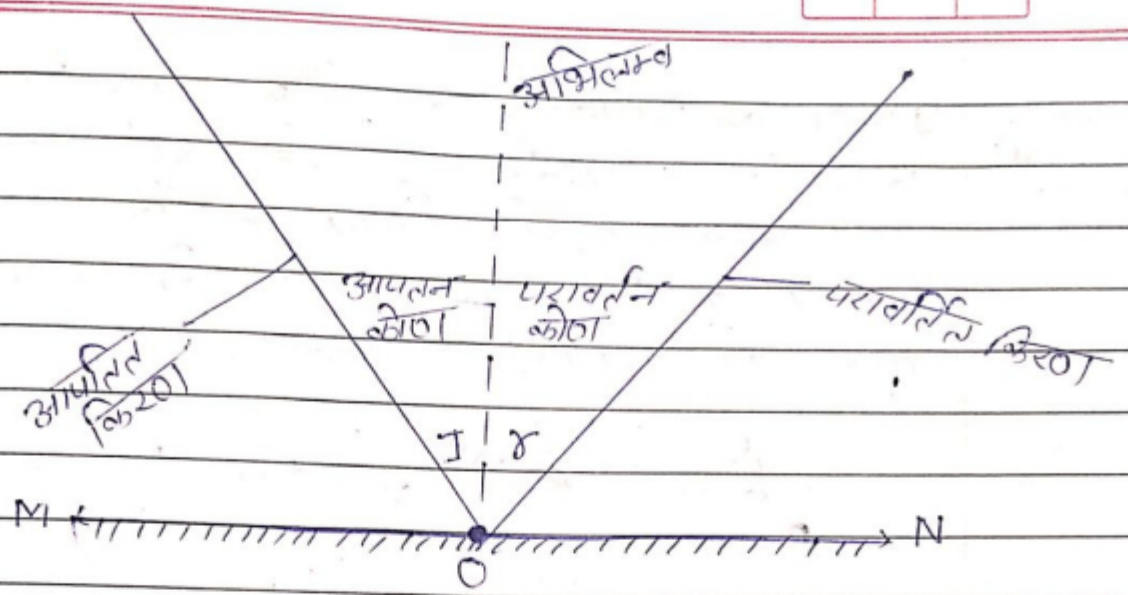 अभिलम्ब
आपतन
कोण
परावर्तन
कोण
परावर्तित किरण
आपतित
किरण
I r
M N
O